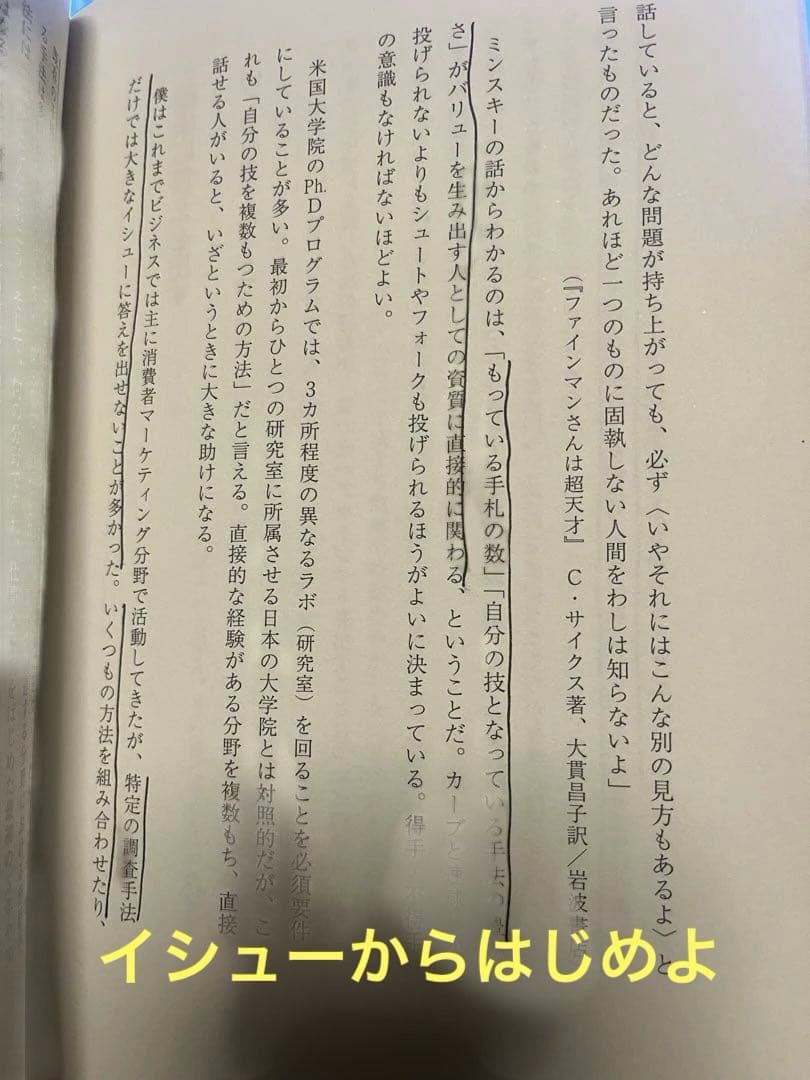 話していると、どんな問題が持ち上がっても、必ず〈いやそれにはこんな別の見方もあるよ〉と
言ったものだった。あれほど一つのものに固執しない人間をわしは知らないよ」
（『ファインマンさんは超天才』 C・サイクス著、大貫昌子訳／岩波書店
ミンスキーの話からわかるのは、「もっている手札の数」「自分の技となっている手法の豊
さ」がバリューを生み出す人としての資質に直接的に関わる、ということだ。カーブと
投げられないよりもシュートやフォークも投げられるほうがよいに決まっている。得手
の意識もなければないほどよい。
米国大学院のPh.Dプログラムでは、3カ所程度の異なるラボ（研究室）を回ることを必須要件
にしていることが多い。最初からひとつの研究室に所属させる日本の大学院とは対照的だが、こ
れも「自分の技を複数もつための方法」だと言える。直接的な経験がある分野を複数もち、直接
話せる人がいると、いざというときに大きな助けになる。
僕はこれまでビジネスでは主に消費者マーケティング分野で活動してきたが、特定の調査手法
だけでは大きなイシューに答えを出せないことが多かった。いくつもの方法を組み合わせたり、
イシューからはじめよ